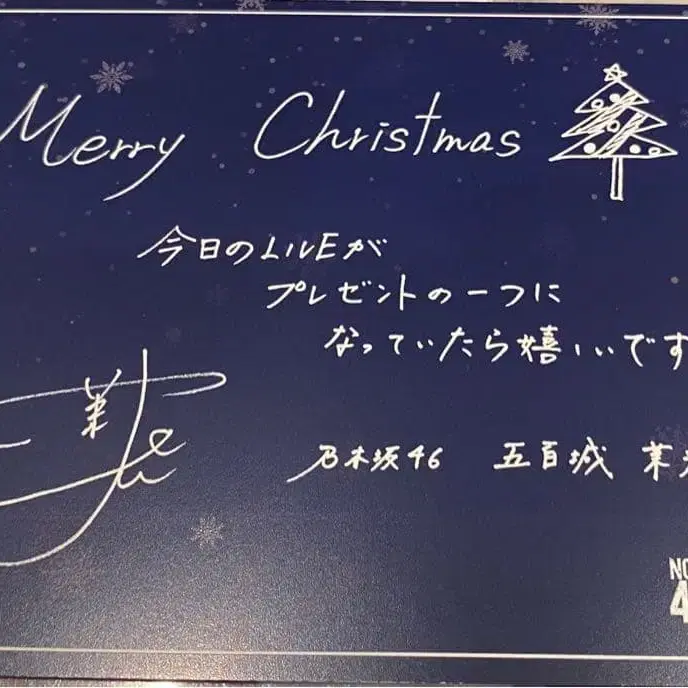 Merry Christmas
今日のLIVEが
プレゼントの一つに
なっていたら嬉しいです
乃木坂46 五百城 茉
NO
4